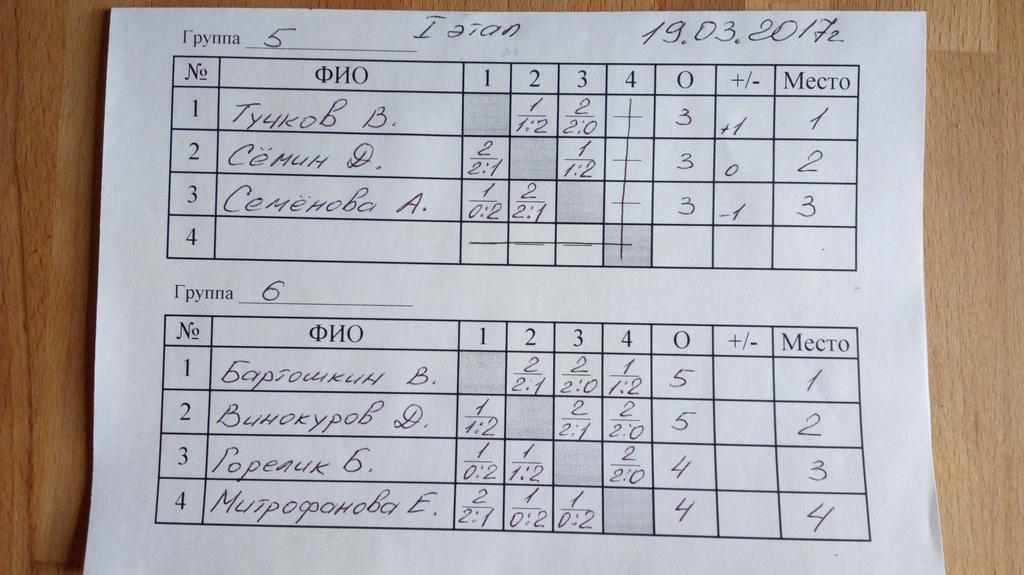 Группа 5 I этап 19.03.2017г
№ ФИО 1 2 3 4 О +/- Место
1 Тучков В. 1 1:2 2 2:0 — 3 +1 1
2 Сёмин Д. 2 2:1 1 1:2 — 3 0 2
3 Семёнова А. 1 0:2 2 2:1 — 3 -1 3
4 — — — —
Группа 6
№ ФИО 1 2 3 4 О +/- Место
1 Бартошкин В. 2 2:1 2 2:0 1 1:2 5 1
2 Винокуров Д. 1 1:2 2 2:1 2 2:0 5 2
3 Горелик Б. 1 0:2 1 1:2 2 2:0 4 3
4 Митрофанова Е. 2 2:1 1 0:2 1 0:2 4 4